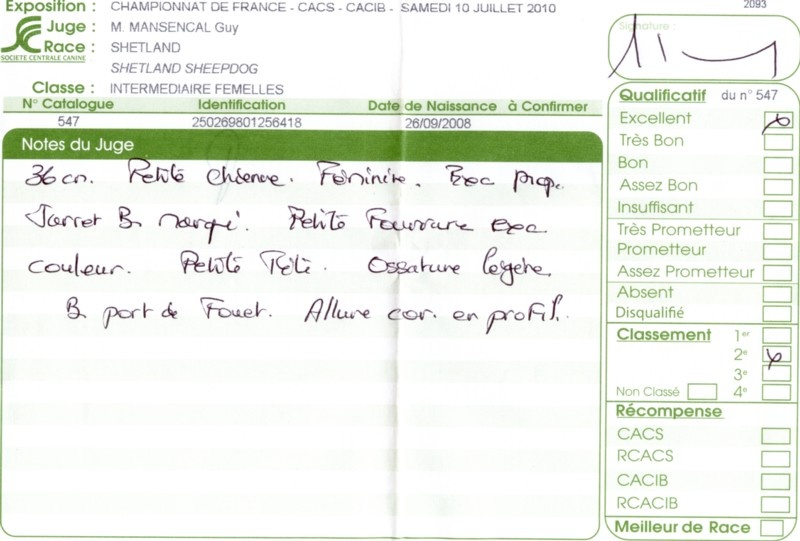 Exposition : CHAMPIONNAT DE FRANCE - CACS - CACIB - SAMEDI 10 JUILLET 2010
2093
Juge : M. MANSENCAL Guy
Race : SHETLAND
SOCIETE CENTRALE CANINE
SHETLAND SHEEPDOG
Classe : INTERMEDIAIRE FEMELLES
N° Catalogue Identification Date de Naissance à Confirmer
547 250269801256418 26/09/2008
Notes du Juge
36 cm. Petite chienne. Féminine. Exc prop.
Jarret B. marqué. Petite Fourrure exc.
couleur. Petite Tête. Ossature légère.
B port de Fouet. Allure cor. en profil.
Signature :
Qualificatif du n° 547
Excellent
Très Bon
Bon
Assez Bon
Insuffisant
Très Prometteur
Prometteur
Assez Prometteur
Absent
Disqualifié
Classement 1er
2e
3e
Non Classé 4e
Récompense
CACS
RCACS
CACIB
RCACIB
Meilleur de Race